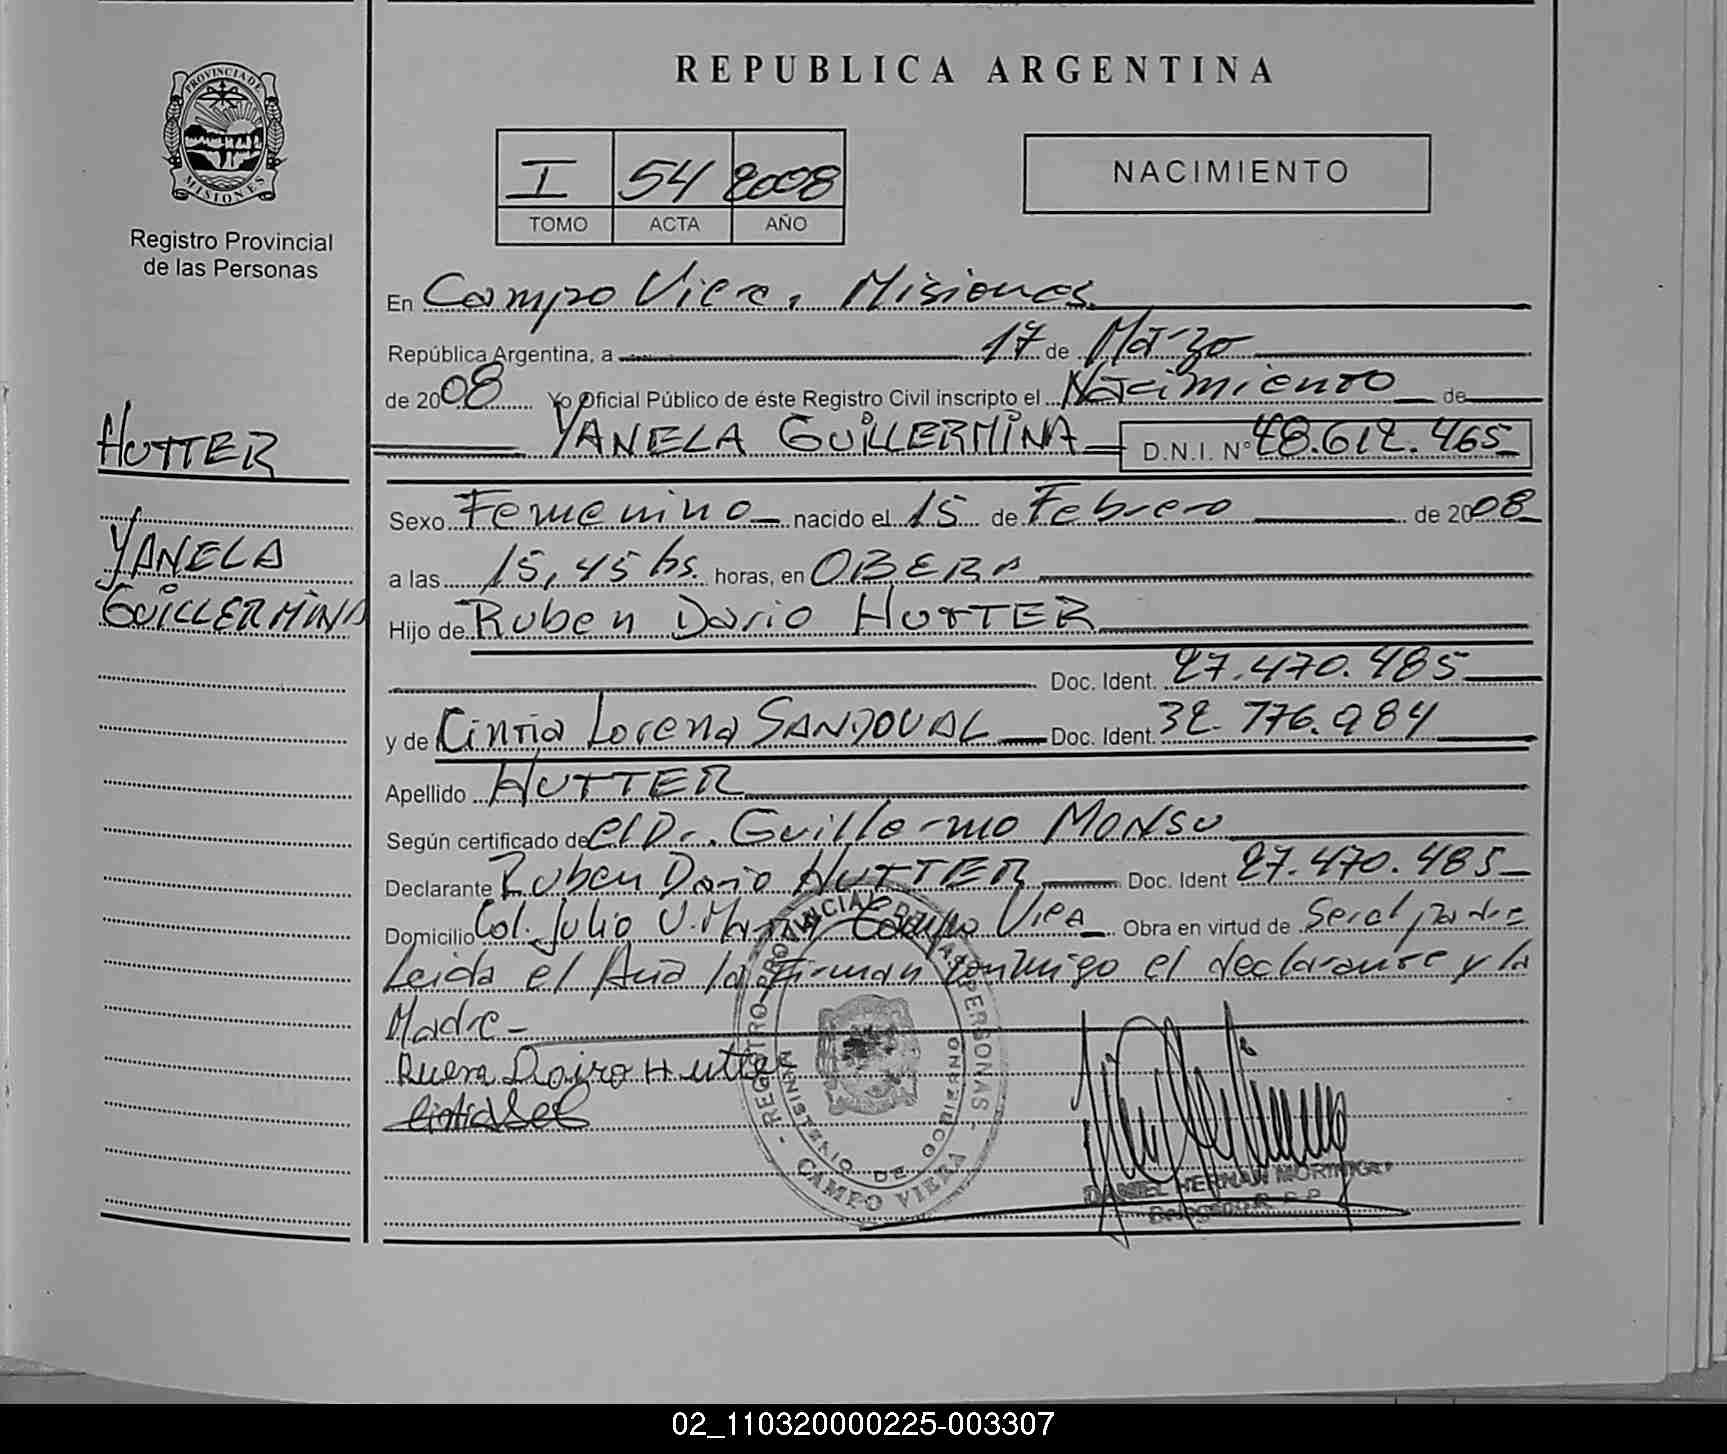 REPUBLICA ARGENTINA
PROVINCIA DE MISIONES
Registro Provincial
de las Personas
I 54 2008
TOMO ACTA AÑO
NACIMIENTO
En Campo Viera, Misiones
República Argentina, a 17 de Marzo
de 2008 Yo Oficial Público de éste Registro Civil inscripto el Nacimiento de
YANELA GUILLERMINA D.N.I. N° 48.612.465
HUTTER
YANELA
GUILLERMINA
Sexo Femenino nacido el 15 de Febrero de 2008
a las 15,45 hs. horas, en OBERA
Hijo de Ruben Dario HUTTER
Doc. Ident. 27.470.485
y de Cintia Lorena SANDOVAL Doc. Ident. 32.776.984
Apellido HUTTER
Según certificado de el Dr. Guillermo MONSU
Declarante Ruben Dario HUTTER Doc. Ident 27.470.485
Domicilio Col. Julio U. Martin Campo Viera Obra en virtud de Ser el padre
Leida el Acta la Firman conmigo el declarante y la
Madre
Hutter
REGISTRO PROVINCIAL DE LAS PERSONAS
MINISTERIO DE GOBIERNO
CAMPO VIERA
DANIEL HERNAN
Delegado R.P.P.
02_110320000225-003307